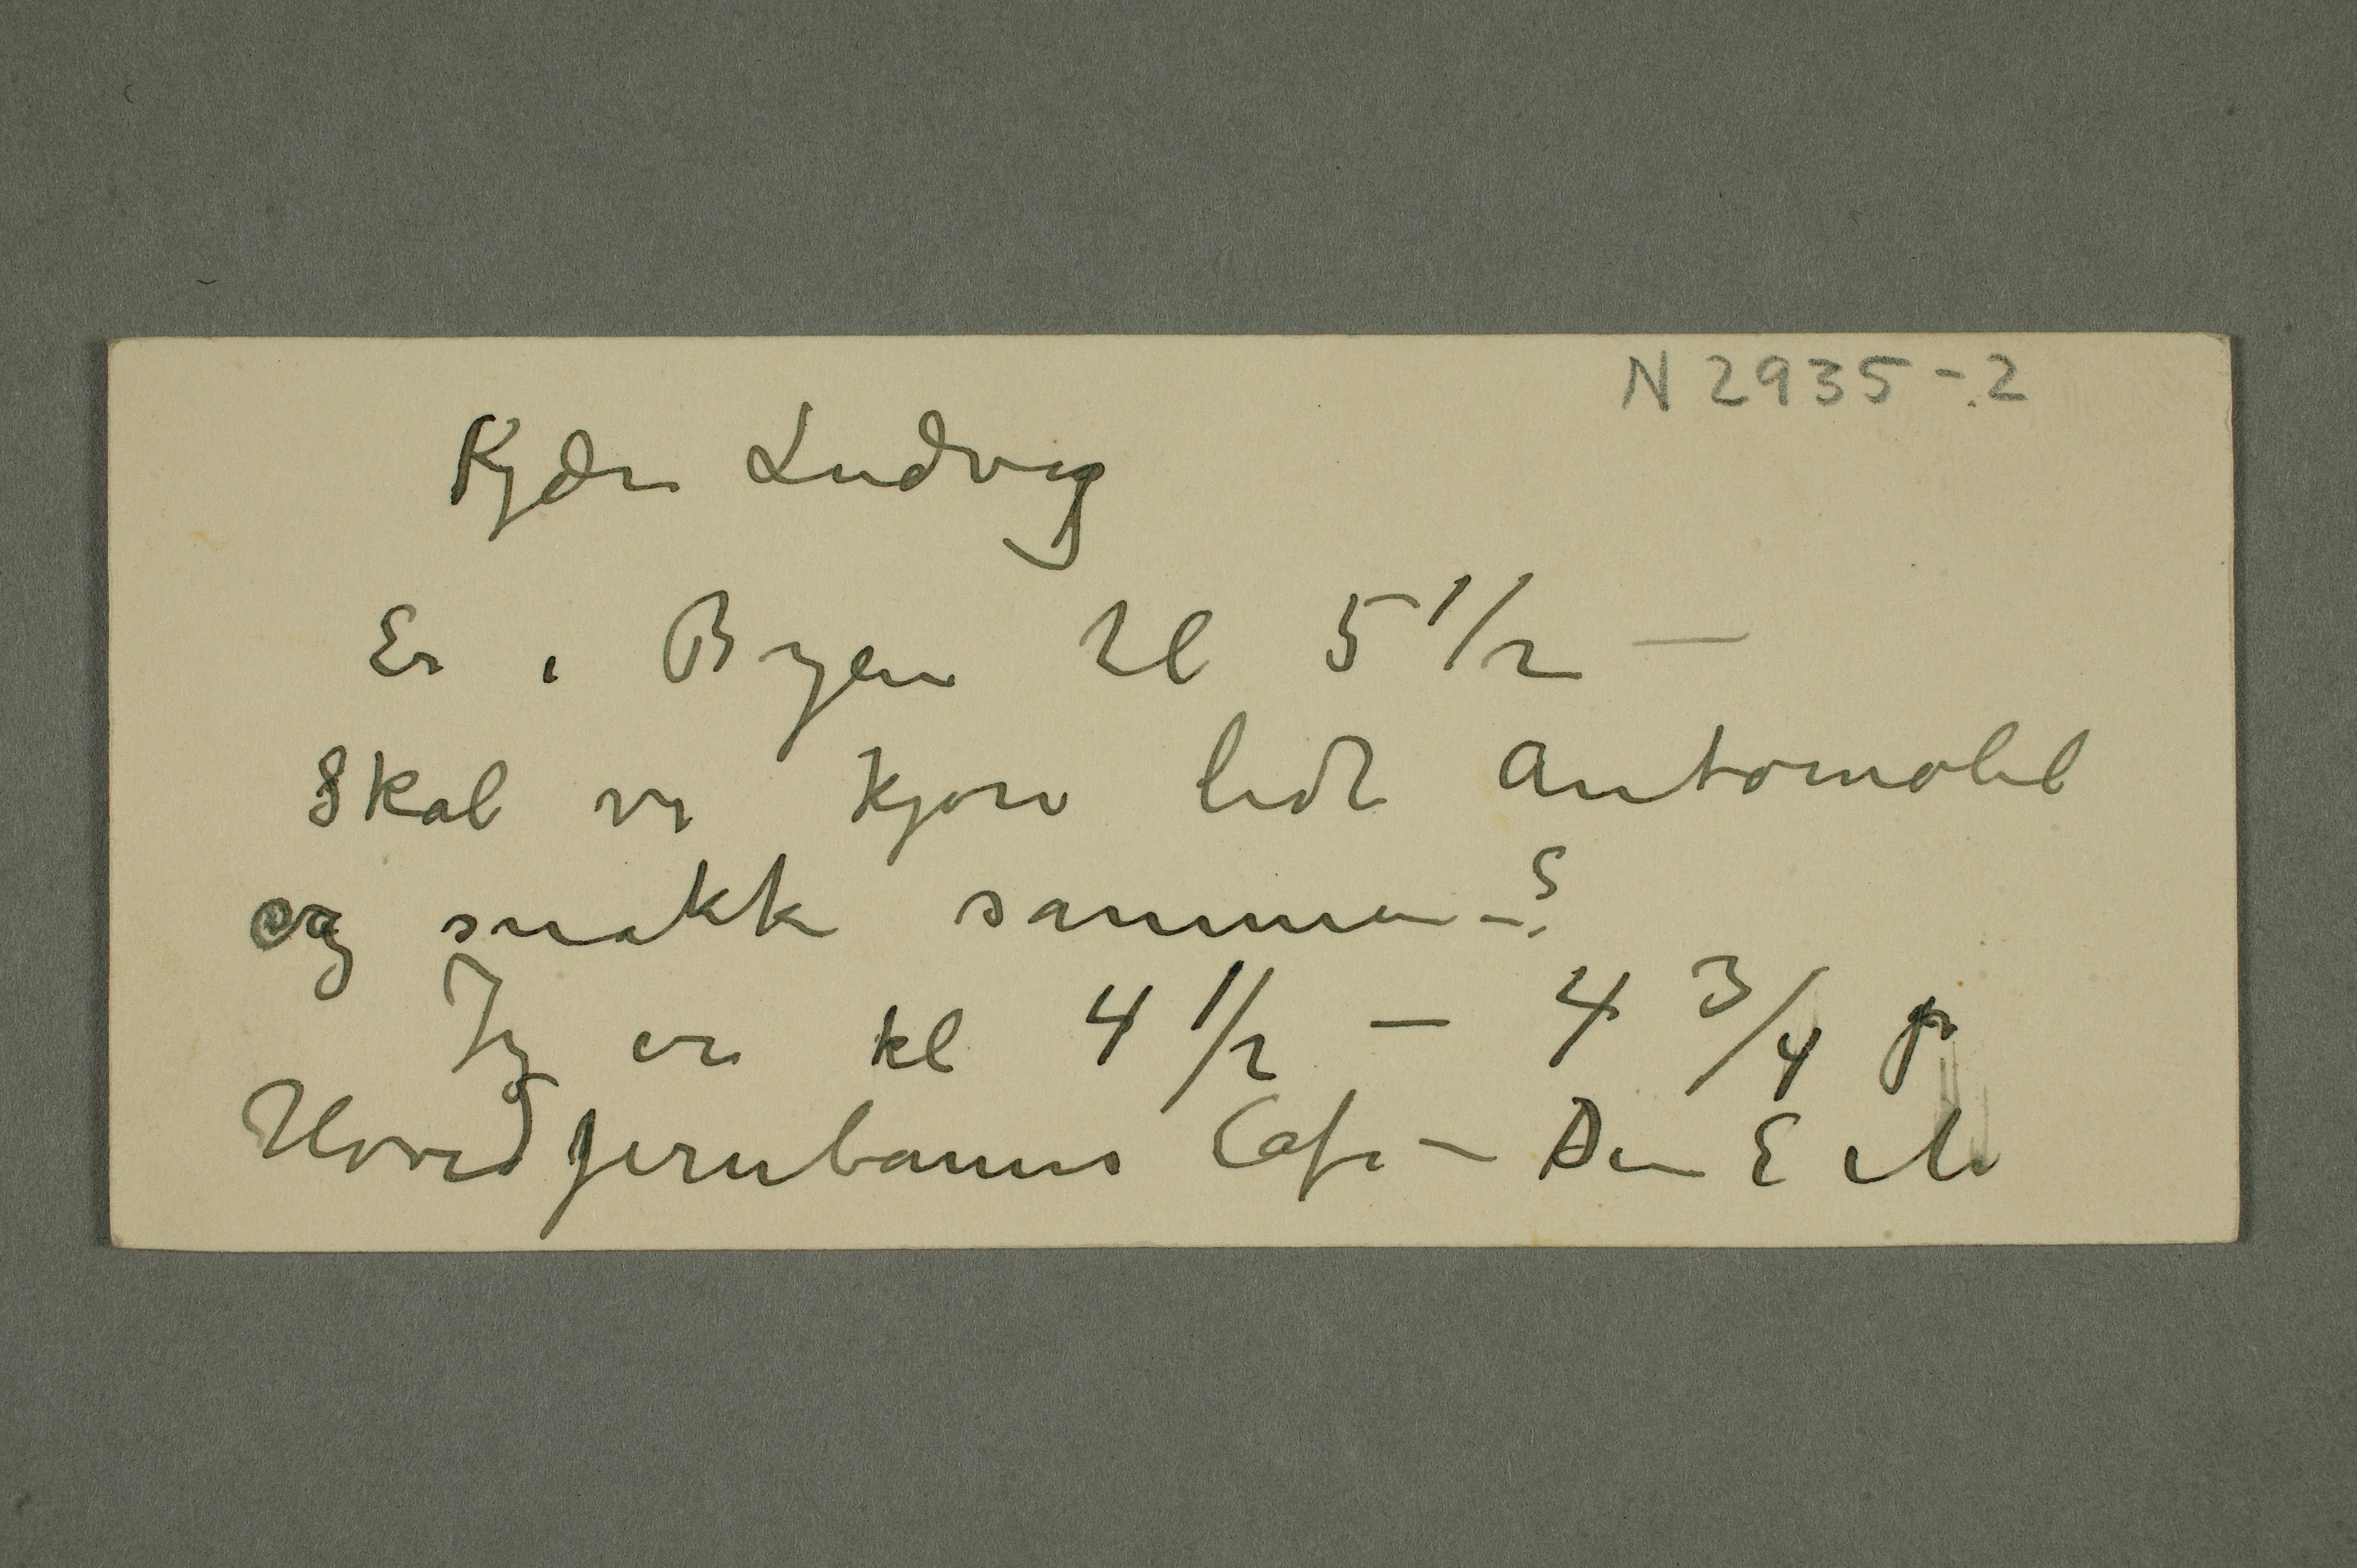 N 2935-2
Kjære Ludvig
Er i Byen til 5 1/2 —
Skal vi kjøre lidt Automobil
og snakke sammen –?
Jeg er kl 4 1/2 – 4 3/4 på
Hovedjernbanens Café – Din E M